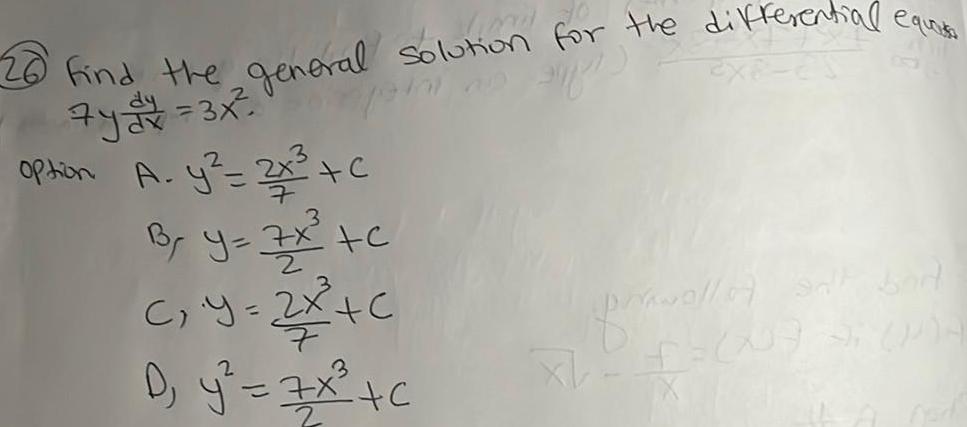 26 Find the general solution for the differential
7y dy/dx = 3x².
option A. y² = 2x³/7 + C
B, y = 7x³/2 + C
C, y = 2x³/7 + C
D, y² = 7x³/2 + C